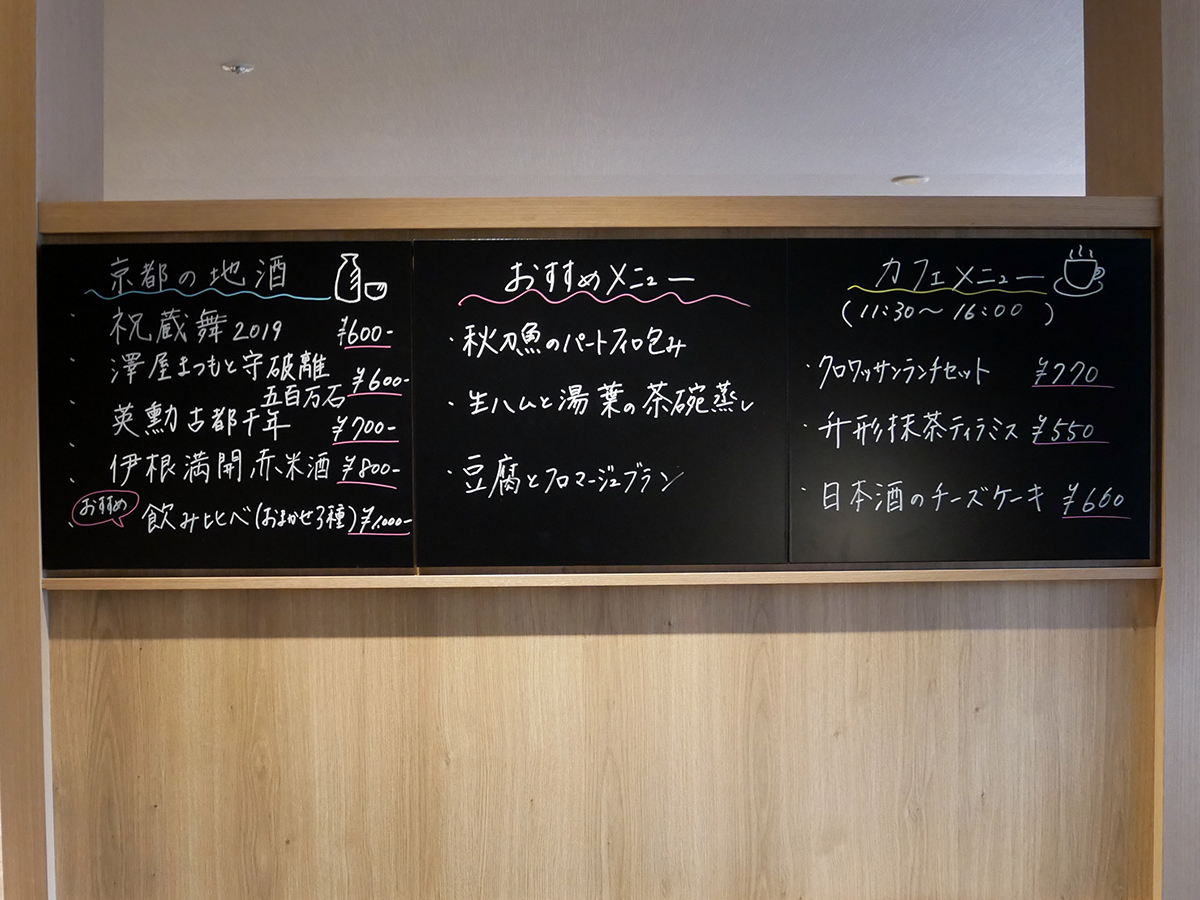 京都の地酒
・祝蔵舞2019 ¥600-
・澤屋まつもと守破離
五百万石 ¥600-
・英勲古都千年 ¥700-
・伊根満開 赤米酒 ¥800-
おすすめ
・飲み比べ(おまかせ3種) ¥1,000-
おすすめメニュー
・秋刀魚のパートフィロ包み
・生ハムと湯葉の茶碗蒸し
・豆腐とフロマージュブラン
カフェメニュー
(11:30〜16:00)
・クロワッサンランチセット ¥770
・升形抹茶ティラミス ¥550
・日本酒のチーズケーキ ¥660